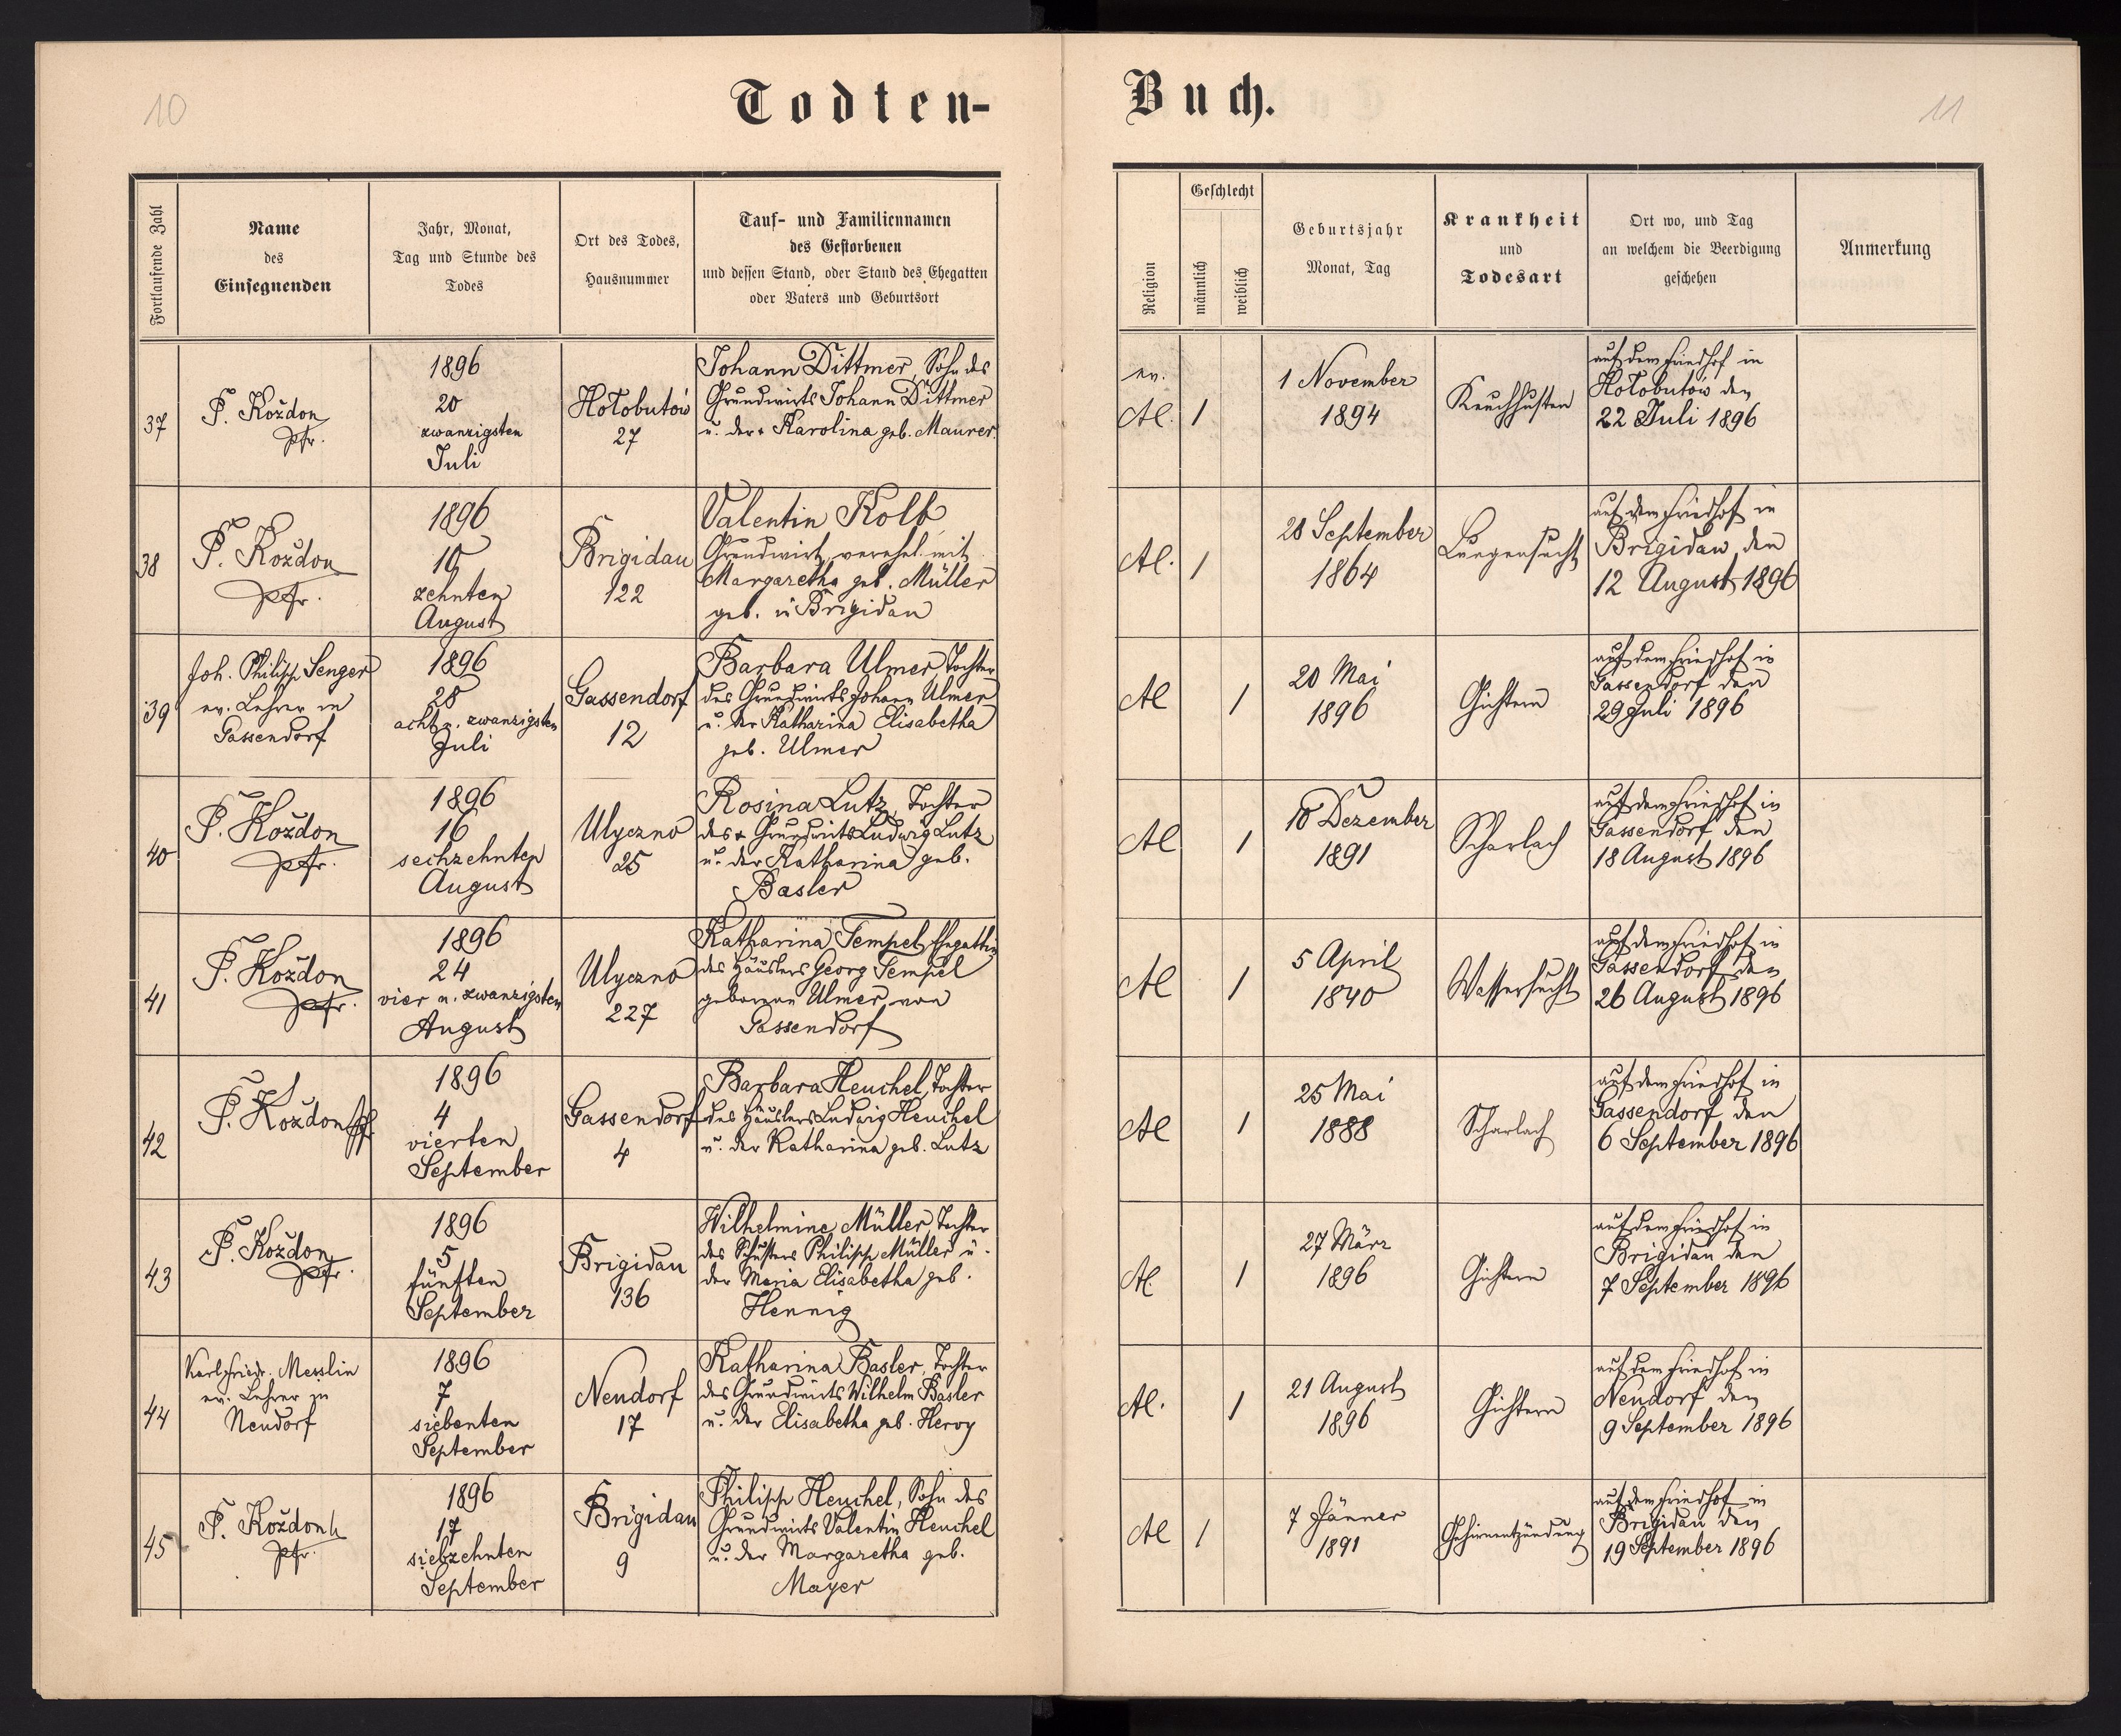 10
Todten-
Fortlaufende Zahl
Name
des
Einsegnenden
Jahr, Monat,
Tag und Stunde des
Todes
Ort des Todes,
Hausnummer
Tauf- und Familiennamen
des Gestorbenen
und dessen Stand, oder Stand des Ehegatten
oder Vaters und Geburtsort
37
P. Koždon
Pfr.
1896
20
zwanzigsten
Juli
Hołobutów
27
Johann Dittmer, Sohn des
Grundwirts Johann Dittmer
u. der Karolina geb. Maurer.
38
P. Koždon
Pfr.
1896
10
zehnten
August
Brigidau
122
Valentin Kolb
Grundwirt, verehel. mit
Margaretha geb. Müller
geb. in Brigidau
39
Joh. Philipp Senger
ev. Lehrer in
Gassendorf
1896
28
acht u. zwanzigsten
Juli
Gassendorf
12
Barbara Ulmer, Tochter
des Grundwirts Johann Ulmer
u. der Katharina Elisabetha
geb. Ulmer
40
P. Koždon
Pfr.
1896
16
sechzehnten
August
Ulyczno
25
Rosina Lutz, Tochter
des + Grundwirts Ludwig Lutz
u. der Katharina geb.
Basler
41
P. Koždon
Pfr.
1896
24
vier u. zwanzigsten
August
Ulyczno
227
Katharina Tempel, Ehegattin
des Häuslers Georg Tempel
geborene Ulmer von
Gassendorf
42
P. Koždon Pfr.
1896
4
vierten
September
Gassendorf
4
Barbara Heuchel, Tochter
des Häuslers Ludwig Heuchel
u. der Katharina geb. Lutz
43
P. Koždon
Pfr.
1896
5
fünften
September
Brigidau
136
Wilhelmine Müller, Tochter
des Schusters Philipp Müller u.
der Maria Elisabetha geb.
Hennig
44
Karl Friedr. Messlin
ev. Lehrer in
Neudorf
1896
7
siebenten
September
Neudorf
17
Katharina Basler, Tochter
des Grundwirts Wilhelm Basler
u. der Elisabetha geb. Hervy
45
P. Koždon
Pfr.
1896
17
siebzehnten
September
Brigidau
9
Philipp Heuchel, Sohn des
Grundwirts Valentin Heuchel
u. der Margaretha geb.
Mayer
Buch.
11
Religion
Geschlecht
männlich
weiblich
Geburtsjahr
Monat, Tag
Krankheit
und
Todesart
Ort wo, und Tag
an welchem die Beerdigung
geschehen
Anmerkung
ev.
AC.
1
1 November
1894
Keuchhusten
auf dem Friedhof in
Hołobutów den
22 Juli 1896
AC.
1
28 September
1864
Lungensucht
auf dem Friedhof in
Brigidau den
12 August 1896
AC
1
20 Mai
1896
Gichtern
auf dem Friedhof in
Gassendorf den
29 Juli 1896
AC
1
10 Dezember
1891
Scharlach
auf dem Friedhof in
Gassendorf den
18 August 1896
AC
1
5 April
1840
Wassersucht
auf dem Friedhof in
Gassendorf den
26 August 1896
AC
1
25 Mai
1888
Scharlach
auf dem Friedhof in
Gassendorf den
6 September 1896
AC
1
27 März
1896
Gichtern
auf dem Friedhof in
Brigidau den
7 September 1896
AC.
1
21 August
1896
Gichtern
auf dem Friedhof in
Neudorf den
9 September 1896
AC
1
7 Jänner
1891
Gehirnentzündung
auf dem Friedhof in
Brigidau den
19 September 1896